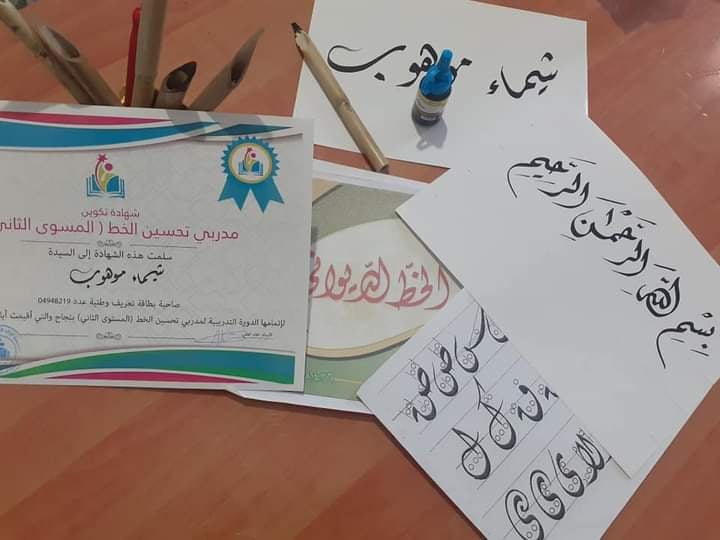 شيماء موهوب
شهادة تكوين
مدربي تحسين الخط ( المسوى الثاني
سلمت هذه الشهادة إلى السيدة
شيماء موهوب
صاحبة بطاقة تعريف وطنية عدد 04948219
لإتمامها الدورة التدريبية لمدربي تحسين الخط (المستوى الثاني) بنجاح والتي أقيمت
الخط الديواني
بِسْمِ اللَّهِ الرَّحْمٰنِ الرَّحِيمِ